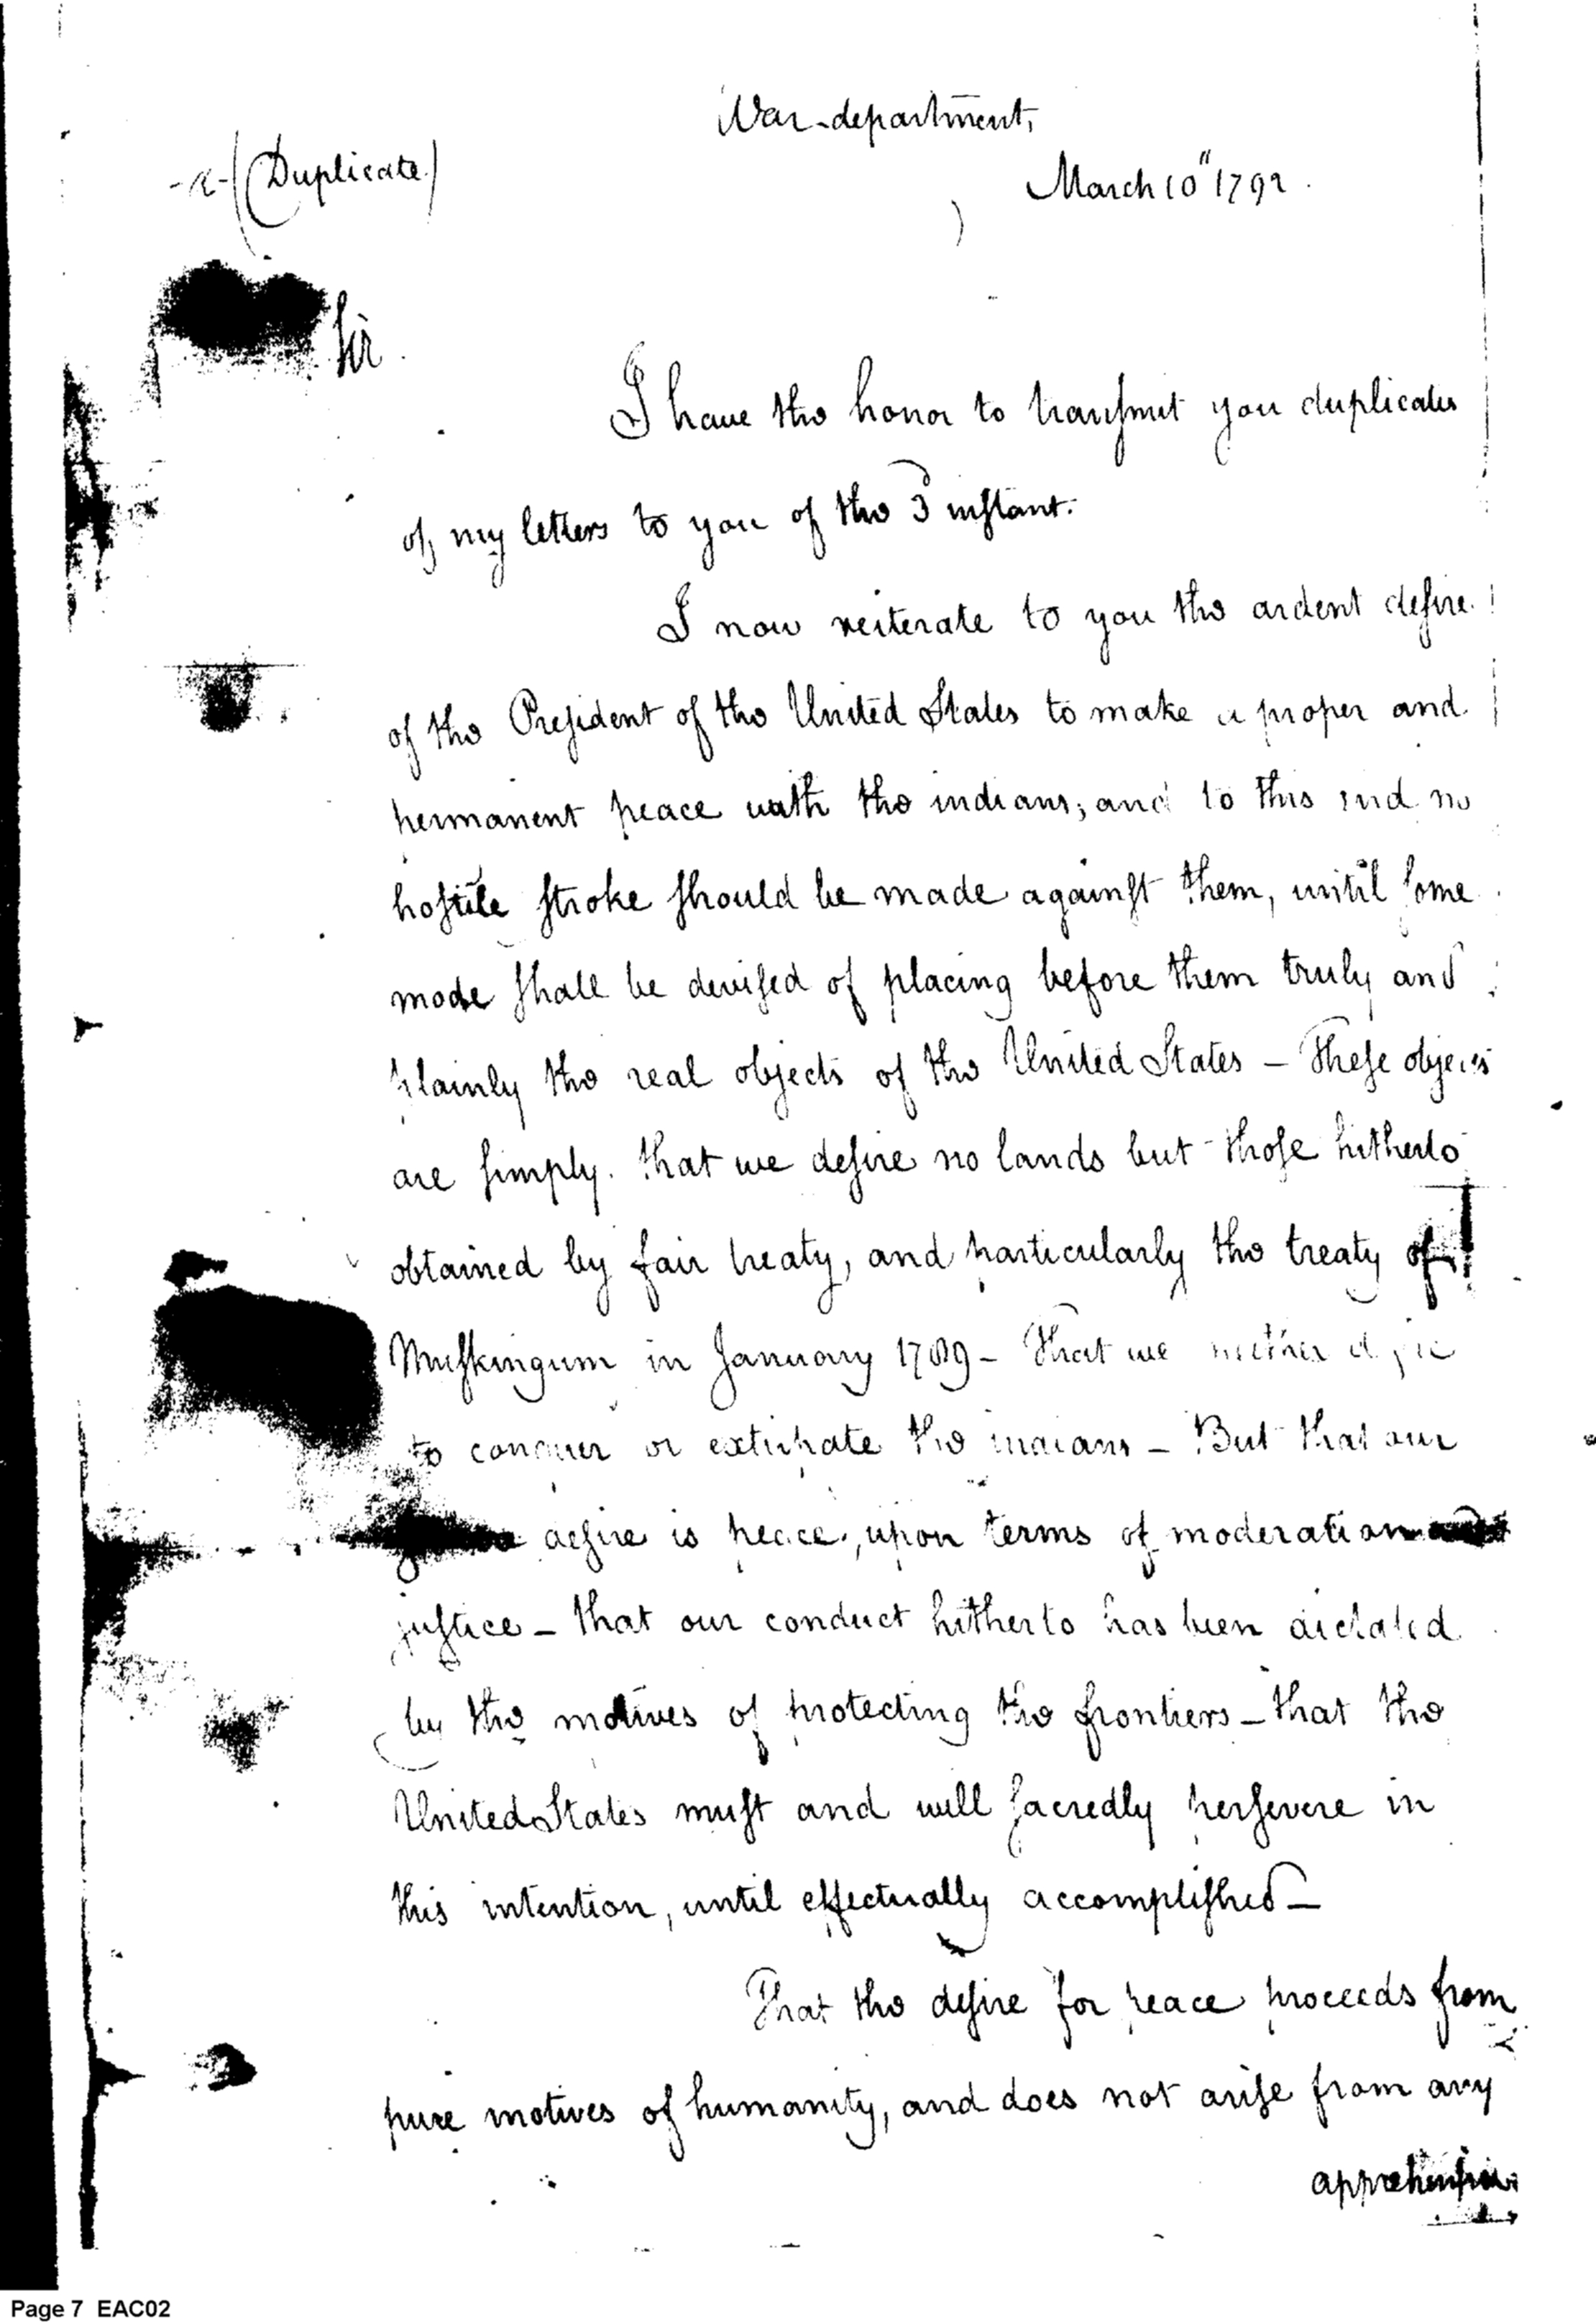 War department,
(Duplicate)
March 10" 1792.
Sir
I have the honor to transmit you duplicates
of my letters to you of the 3 instant.
I now reiterate to you the ardent desire
of the President of the United States to make a proper and
permanent peace with the indians; and to this end no
hostile stroke should be made against them, until some
mode shall be devised of placing before them truly and
plainly the real objects of the United States – These objects
are simply. that we desire no lands but those hitherto
obtained by fair treaty, and particularly the treaty of
Muskingum in January 1789 – That we neither desire
to conquer or extirpate the indians – But that our
desire is peace, upon terms of moderation and
justice – that our conduct hitherto has been dictated
by the motives of protecting the frontiers – that the
United States must and will sacredly persevere in
this intention, until effectually accomplished –
That the desire for peace proceeds from
pure motives of humanity, and does not arise from any
apprehension
Page 7 EAC02